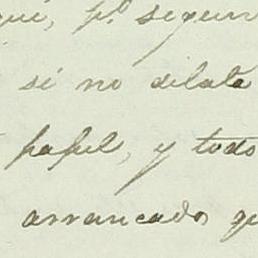 qué, p.º seguir
si no dilata
papel, y todo
arrancados qu